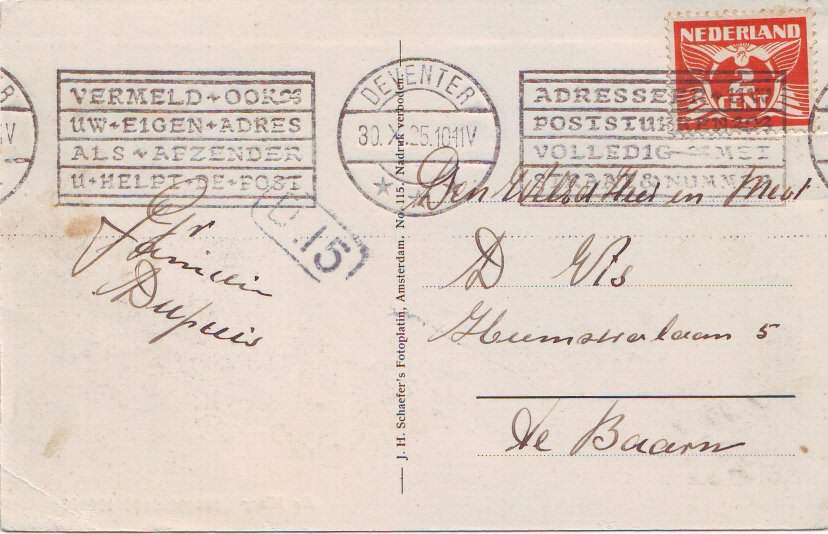 NEDERLAND
2
CENT
VERMELD OOK
UW EIGEN ADRES
ALS AFZENDER
U HELPT DE POST
DEVENTER
30.X.25.10-11V
ADRESSEER
POSTSTUKKEN
VOLLEDIG MET
STRAAT & NUMMER
D.15
Familie
Dupuis
J. H. Schaefer's Fotoplatin, Amsterdam. No. 115. Nadruk verboden.
Den Weled Heer en Mevr
D Vis
5
Te Baarn